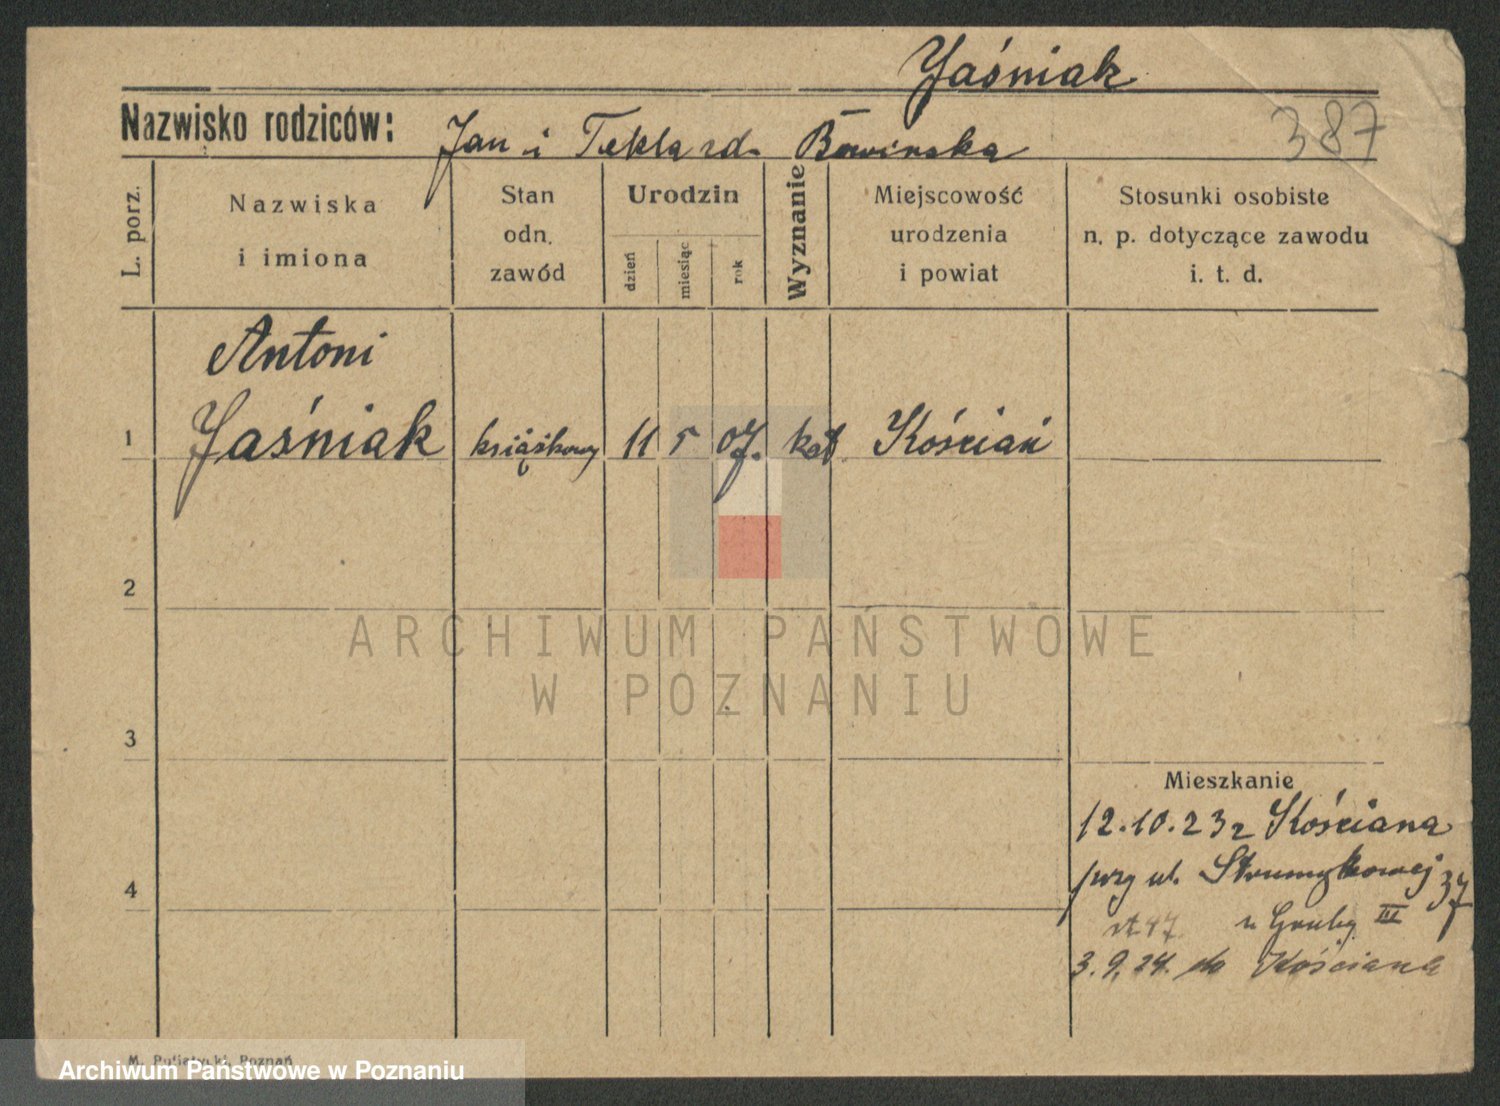 Jaśniak
387
Nazwisko rodziców: Jan i Tekla rd.
L. porz.
Nazwiska i imiona
Stan odn. zawód
Urodzin
dzień
miesiąc
rok
Wyznanie
Miejscowość urodzenia i powiat
Stosunki osobiste n. p. dotyczące zawodu i. t. d.
Antoni
1 Jaśniak książkowy 11 5 07. kat Kościan
2
ARCHIWUM PAŃSTWOWE
W POZNANIU
3
Mieszkanie
12.10.23 z Kościana
przy ul. Strumykowej 37
4
u Gruby III
3.9.24. do Kościana
M. Putiatycki, Poznań
Archiwum Państwowe w Poznaniu